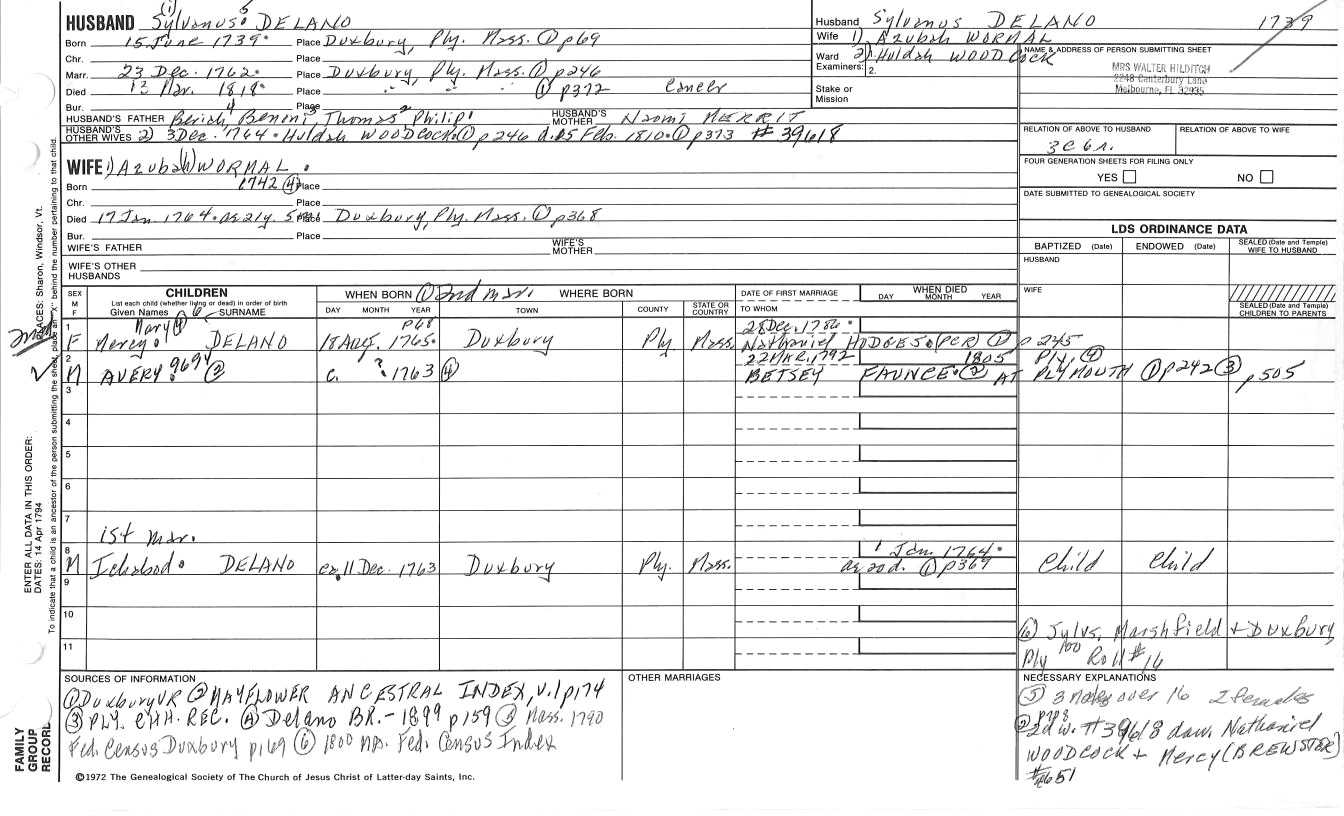 HUSBAND (1) Sylvanus 5 DELANO
Born 15 June 1739. Place Duxbury, Ply. Mass. (1) p69
Chr. Place
Marr. 23 Dec. 1762. Place Duxbury, Ply. Mass. (1) p246
Died 13 Mar. 1818. Place " " " (1) p372 Cancer
Bur. Place
HUSBAND'S FATHER Beriah 4, Benoni 3, Thomas 2, Philip 1 HUSBAND'S MOTHER Naomi MERRIT
HUSBAND'S OTHER WIVES 2) 3 Dec. 1764. Huldah WOODCOCK. (1) p246 d. 25 Feb. 1810. (1) p373 #39618
Husband Sylvanus DELANO 1739
Wife 1) Azubah WORMAL
Ward 2) Huldah WOODCOCK
Examiners: 2.
Stake or Mission
NAME & ADDRESS OF PERSON SUBMITTING SHEET
MRS WALTER HILDITCH
2248 Canterbury Lane
Melbourne, FL 32935
RELATION OF ABOVE TO HUSBAND RELATION OF ABOVE TO WIFE
3c 6r.
FOUR GENERATION SHEETS FOR FILING ONLY
YES NO
DATE SUBMITTED TO GENEALOGICAL SOCIETY
WIFE 1) Azubah (1) WORMAL .
Born 1742 (4) Place
Chr. Place
Died 17 Jan 1764. ae 21y. Place Duxbury, Ply. Mass. (1) p368
Bur. Place
WIFE'S FATHER WIFE'S MOTHER
WIFE'S OTHER HUSBANDS
LDS ORDINANCE DATA
BAPTIZED (Date) ENDOWED (Date) SEALED (Date and Temple) WIFE TO HUSBAND
HUSBAND
WIFE
SEALED (Date and Temple) CHILDREN TO PARENTS
SEX M F
CHILDREN
List each child (whether living or dead) in order of birth
Given Names 6 SURNAME
WHEN BORN (1) 2nd mar. WHERE BORN
DAY MONTH YEAR TOWN COUNTY STATE OR COUNTRY
DATE OF FIRST MARRIAGE
TO WHOM
WHEN DIED
DAY MONTH YEAR
1 Mary (4) p68 28 Dec. 1786.
F Mercy. DELANO 18 Aug. 1765. Duxbury Ply. Mass. Nathaniel HODGES. (PCR) (1) p245
2 22 MAR. 1792 1805 Ply. (4)
M AVERY. 9694 (2) c. ? 1763 (4) BETSEY FAUNCE. (2) AT PLYMOUTH (1) p242 (3) p505
3
4
5
6
7
1st mar.
8 1 Jan. 1764.
M Ichabod. DELANO ca. 11 Dec. 1763 Duxbury Ply. Mass. ae 20d. (1) p369 Child Child
9
10
11
(6) Sylvs, Marshfield + Duxbury
Ply 100 Roll #16
SOURCES OF INFORMATION
(1) Duxbury VR (2) MAYFLOWER ANCESTRAL INDEX, v.1 p174
(3) PLY. CHH. REC. (4) Delano BR.- 1899 p159 (5) Mass. 1790
Fed. Census Duxbury p169 (6) 1800 MA. Fed. Census Index
OTHER MARRIAGES
NECESSARY EXPLANATIONS
(5) 3 males over 16 2 females
(2) 2d w. #39618 dau. Nathaniel
WOODCOCK + Mercy (BREWSTER)
#651
©1972 The Genealogical Society of The Church of Jesus Christ of Latter-day Saints, Inc.
FAMILY GROUP RECORD
ENTER ALL DATA IN THIS ORDER:
DATES: 14 Apr 1794
PLACES: Sharon, Windsor, Vt.
To indicate that a child is an ancestor of the person submitting the sheet, place an "X" behind the number pertaining to that child.